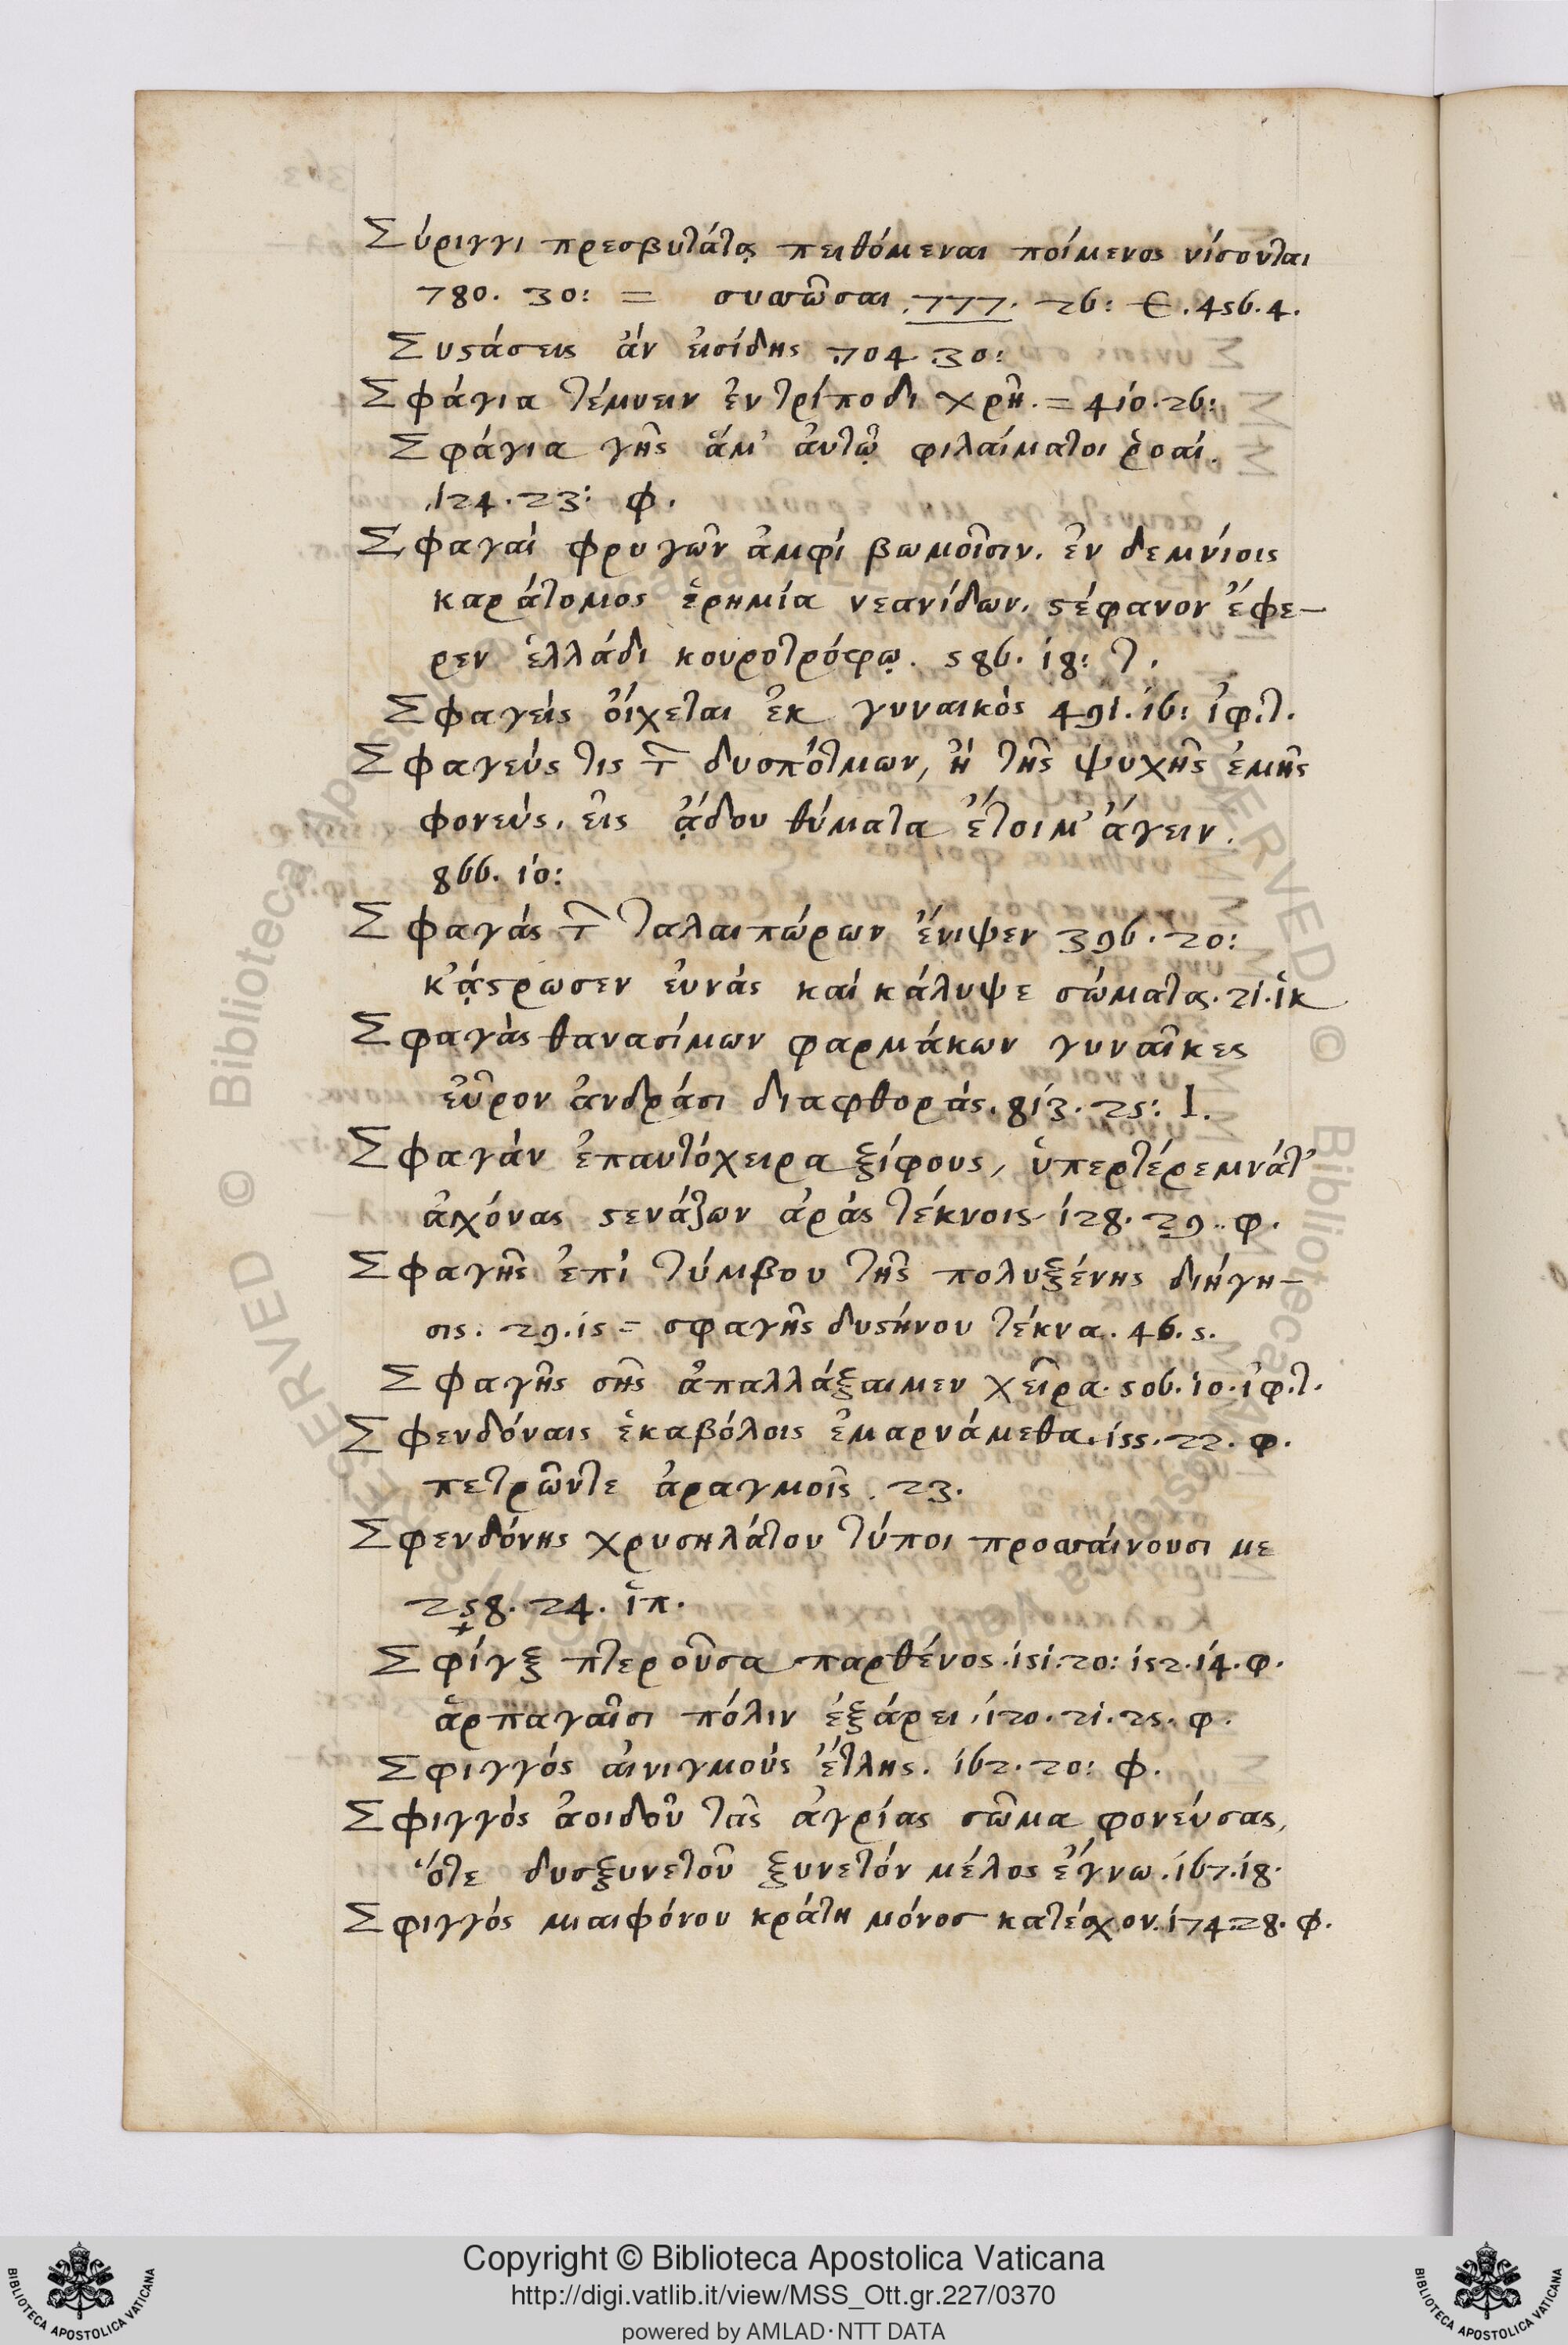 Σύριγγι πρεσβυτάτας πειθόμεναι ποίμενος νίσονται
780. 30: = συσπῶσαι .777. 26: Ɛ. 456. 4.
Συστάσεις ἂν εἰσίδης 704. 30:
Σφάγια τέμνειν ἐν τρίποδι χρή. = 410. 26:
Σφάγια γῆς ἅμ' ἀυτῷ φιλαίματοι ῥοαί.
124. 23: φ.
Σφαγαὶ φρυγῶν ἀμφὶ βωμοῖσιν. ἐν δεμνίοις
καράτομος ἐρημία νεανίδων. στέφανον ἔφε–
ρεν ἑλλάδι κουροτρόφῳ. 586. 18: τ.
Σφαγεὶς οἴχεται ἐκ γυναικὸς 491. 16: ἰφ. τ.
Σφαγεύς τις τ̑ δυσπότμων, ἢ τῆς ψυχῆς ἐμῆς
φονεύς, εἰς ᾅδου θύματα ἔτοιμ' ἄγειν.
866. 10:
Σφαγὰς τ̑ ταλαιπώρων ἔνιψεν 396. 20:
κᾴστρωσεν εὐνὰς καὶ κάλυψε σώματα. 21. ἱκ
Σφαγὰς θανασίμων φαρμάκων γυναῖκες
εὗρον ἀνδράσι διαφθοράς. 813. 25: Ι.
Σφαγὰν ἐπαυτόχειρα ξίφους, ὑπερτέρεμνάτ'
ἀγχόνας στενάζων ἀρὰς τέκνοις 128. 29. φ.
Σφαγῆς ἐπὶ τύμβου τῆς πολυξένης διήγη–
σις. 29. 15 = σφαγῆς δυστήνου τέκνα. 46. 5.
Σφαγῆς σῆς ἀπαλλάξαιμεν χεῖρα. 506. 10. ἰφ. τ.
Σφενδόναις ἑκαβόλοις ἐμαρνάμεθα. 155. 22. φ.
πετρῶντε ἀραγμοῖς. 23.
Σφενδόνης χρυσηλάτου τύποι προσσαίνουσι με
258. 24. ἱπ.
Σφίγξ πτεροῦσα παρθένος. 151. 20: 152. 14. φ.
ἁρπαγαῖσι πόλιν ἐξάρει, 120. 21. 25. φ.
Σφιγγὸς αἰνιγμοὺς ἔτλης. 162. 20: φ.
Σφιγγὸς ἀοιδοῦ τᾶς ἀγρίας σῶμα φονεύσας,
ὅτε δυσξυνετοῦ ξυνετὸν μέλος ἔγνω. 167. 18.
Σφιγγὸς μιαιφόνου κράτη μόνος κατέσχον. 174. 28. φ.
Copyright © Biblioteca Apostolica Vaticana
http://digi.vatlib.it/view/MSS_Ott.gr.227/0370
powered by AMLAD·NTT DATA